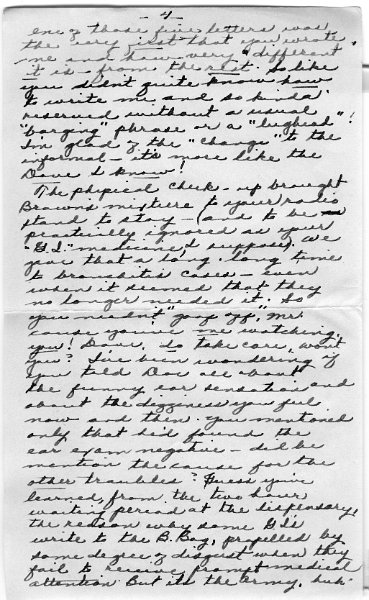 - 4 -
one of those five letters was
the very first that you wrote
me and how very "different"
it is from the rest. So like
you didn't quite know how
to write me and so kinda'
reserved without a usual
"barging" phrase or a "lughead"!
I'm glad of the "change" to the
informal - it's more like the
Dave I know!
The physical check-up brought
Brown's mixture to your radio
stand to stay - (and to be
practically ignored as your
"G.I." medicine, I suppose). We
give that a long - long time
to bronchitis cases - even
when it seemed that they
no longer needed it. So
you needn't "goof off", Mr.
cause you've me watching
you! Dave, do take care, won't
you? I've been wondering if
you told Doc all about
the funny ear sensation and
about the dizziness you feel
now and then. You mentioned
only that he'd found the
ear exam negative - did he
mention the cause for the
other troubles? Guess you've
learned, from the two hour
waiting period at the dispensary,
the reason why some G.I.s
write to the B. Bag, propelled by
some degree of disgust when they
fail to receive prompt medical
attention. But it's the Army, huh -